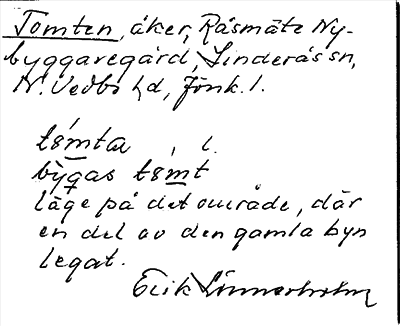 Tomten, åker, Råsmäte Ny-
byggaregård, Linderås sn,
N. Vedbo hd, Jönk. l.
tómta, l.
bỳgas tómt
läge på det område, där
en del av den gamla byn
legat.
Erik Linnerholm